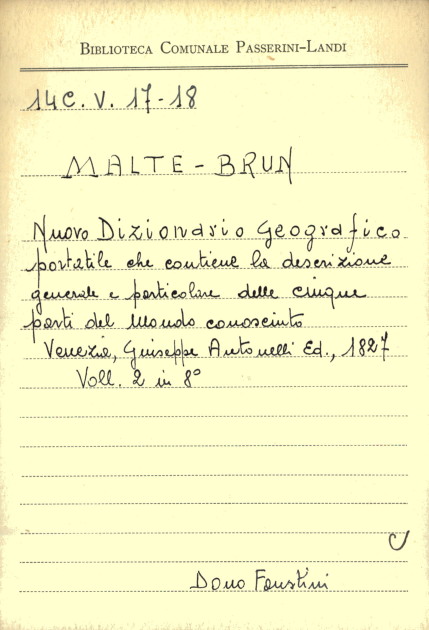 Biblioteca Comunale Passerini-Landi
14C. V. 17-18
MALTE-BRUN
Nuovo Dizionario Geografico
portatile che contiene la descrizione
generale e particolare delle cinque
parti del Mondo conosciuto
Venezia, Giuseppe Antonelli Ed., 1827
Voll. 2 in 8°
Dono Faustini